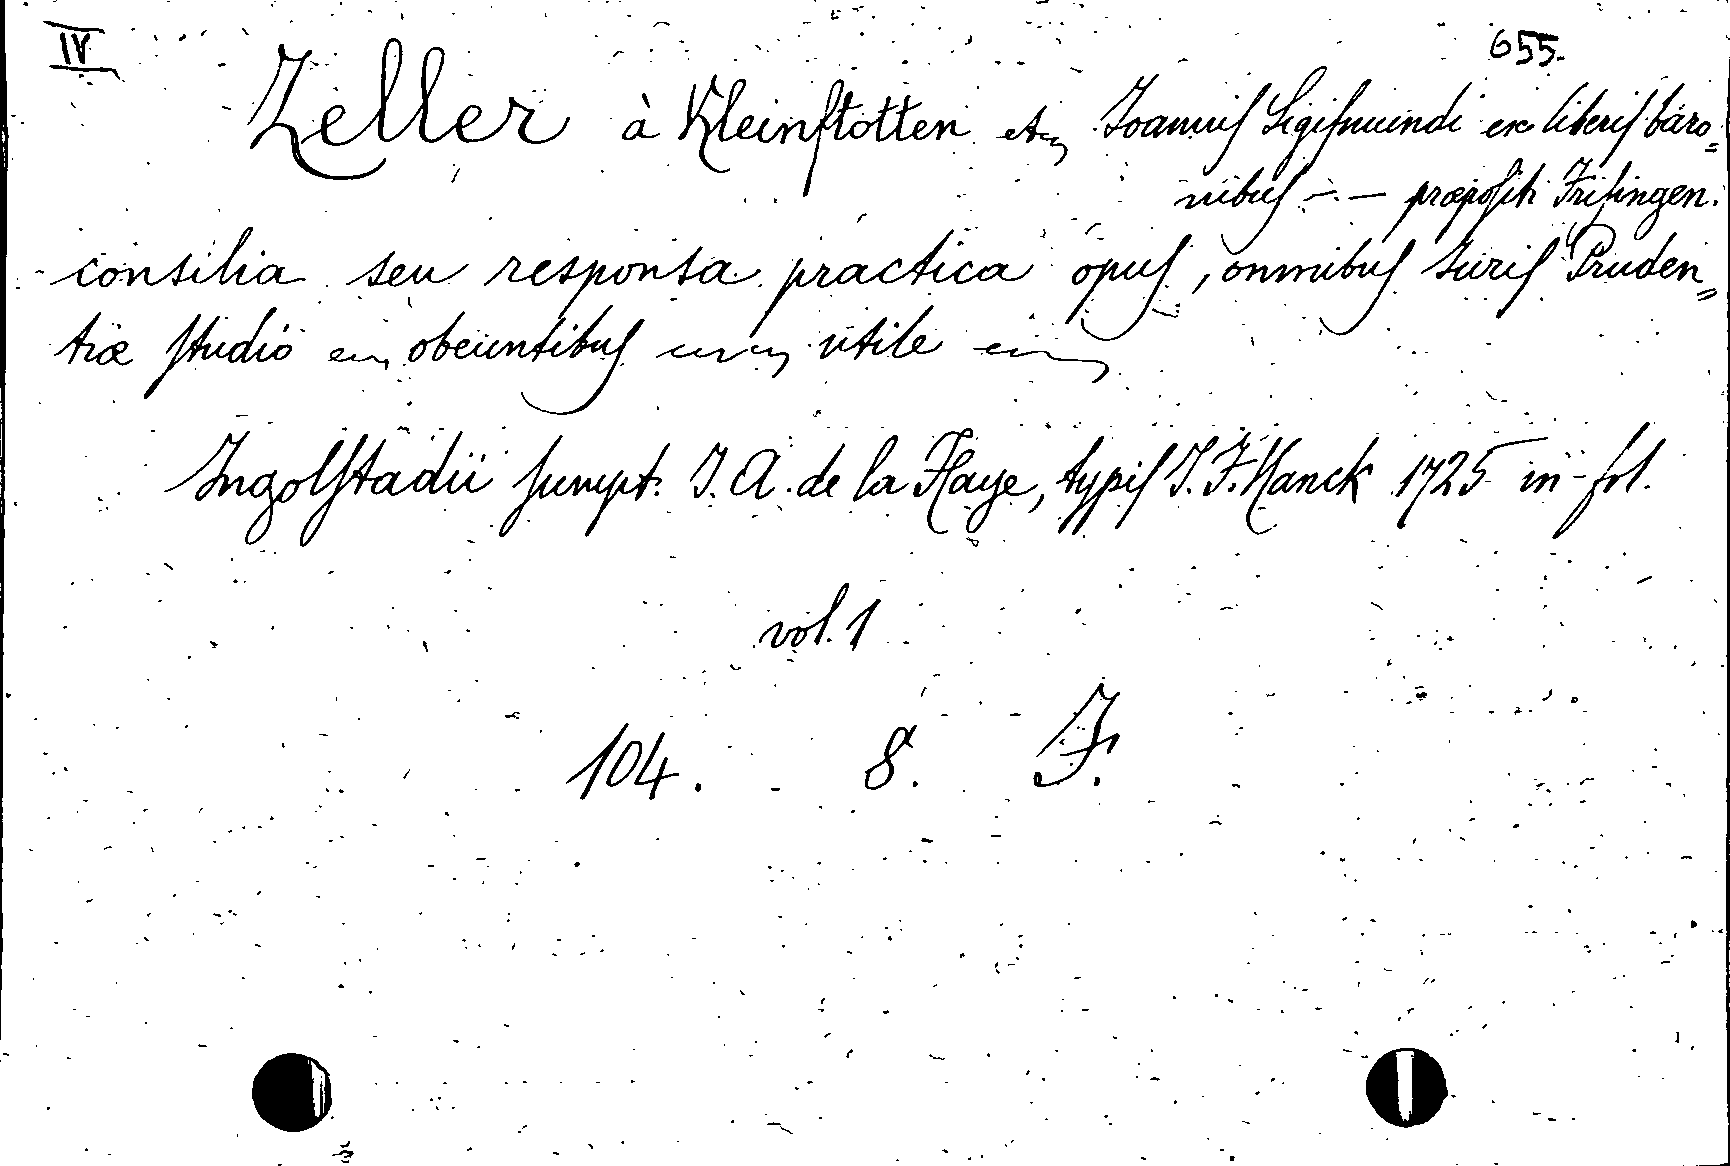 IV
655.
Zeller à Kleinſtotten etc Joanniſ Sigiſmundi ex liberiſ baro=
nibuſ - . - præpoſiti Friſingen.
consilia seu responsa practica opuſ, omnibuſ Juriſ Pruden=
tiæ ſtudio obeuntibuſ utile
Ingolſtadii ſumpt. J. A. de la Haye, typiſ J. F. Hanck 1725 in-fol.
vol. 1
104. 8. F.